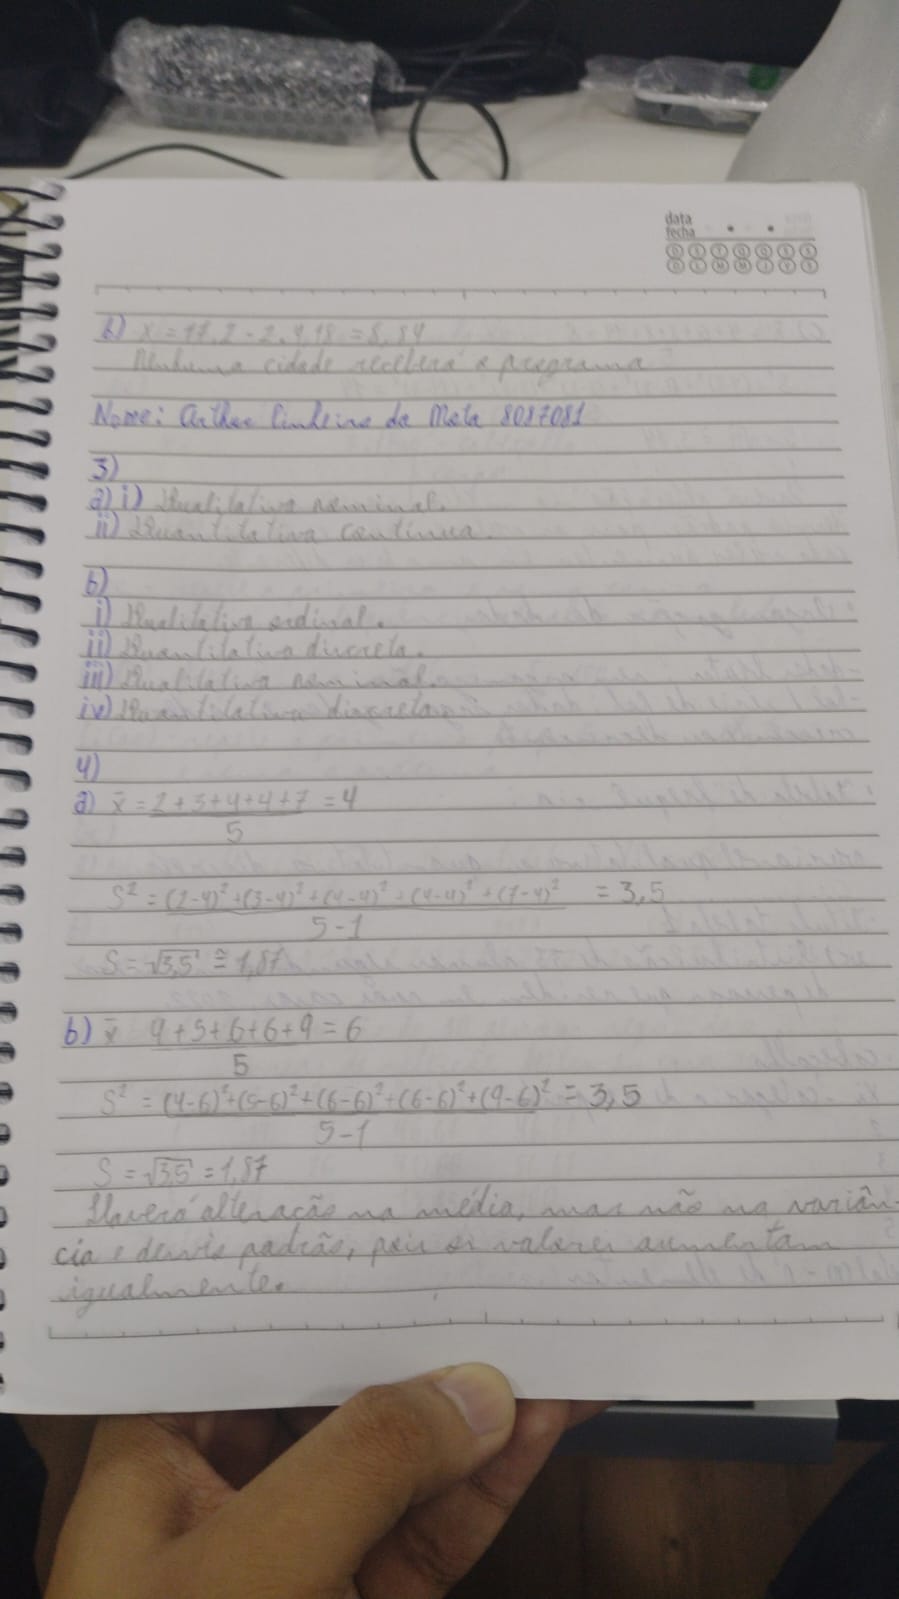 data
fecha
D S T Q Q S S
D L M M J V S
b) X = 17,2 - 2 . 4,18 = 8,84
Nenhuma cidade receberá o programa
Nome: Arthur Pinheiro da Mota 8087081
3)
a) i) Qualitativa nominal.
ii) Quantitativa contínua.
b)
i) Qualitativa ordinal.
ii) Quantitativa discreta.
iii) Qualitativa nominal.
iv) Quantitativa discreta.
4)
a) x̄ = 2+3+4+4+7 = 4
5
S² = (2-4)²+(3-4)²+(4-4)²+(4-4)²+(7-4)² = 3,5
5-1
S = √3,5 ≅ 1,87
b) x̄ 4+5+6+6+9 = 6
5
S² = (4-6)²+(5-6)²+(6-6)²+(6-6)²+(9-6)² = 3,5
5-1
S = √3,5 = 1,87
Haverá alteração na média, mas não na variân-
cia e desvio padrão, pois os valores aumentam
igualmente.